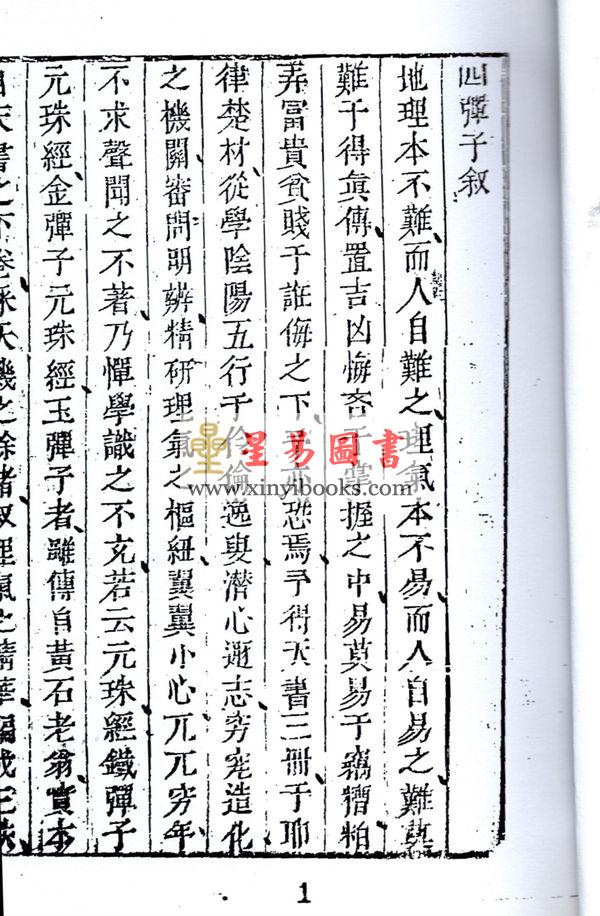 四彈子叙
地理本不難而人自難之理氣本不易而人自易之難莫
難于得眞傳置吉凶悔吝于掌握之中易莫易于竊糟粕
弄冨貴貧賤于誑侮之下 恐焉予得天書三冊于耶
律楚材從學陰陽五行于伶倫逸叟潛心遜志窮究造化
之機關審問明辨精研理氣之樞紐翼翼小心兀兀窮年
不求聲聞之不著乃憚學識之不充若云元珠經鐵彈子
元珠經金彈子元珠經玉彈子者雖傳自黃石老翁實本
天書之下卷采天機之餘緒叙理氣之精華編成
星易圖書
www.xinyibooks.com
1